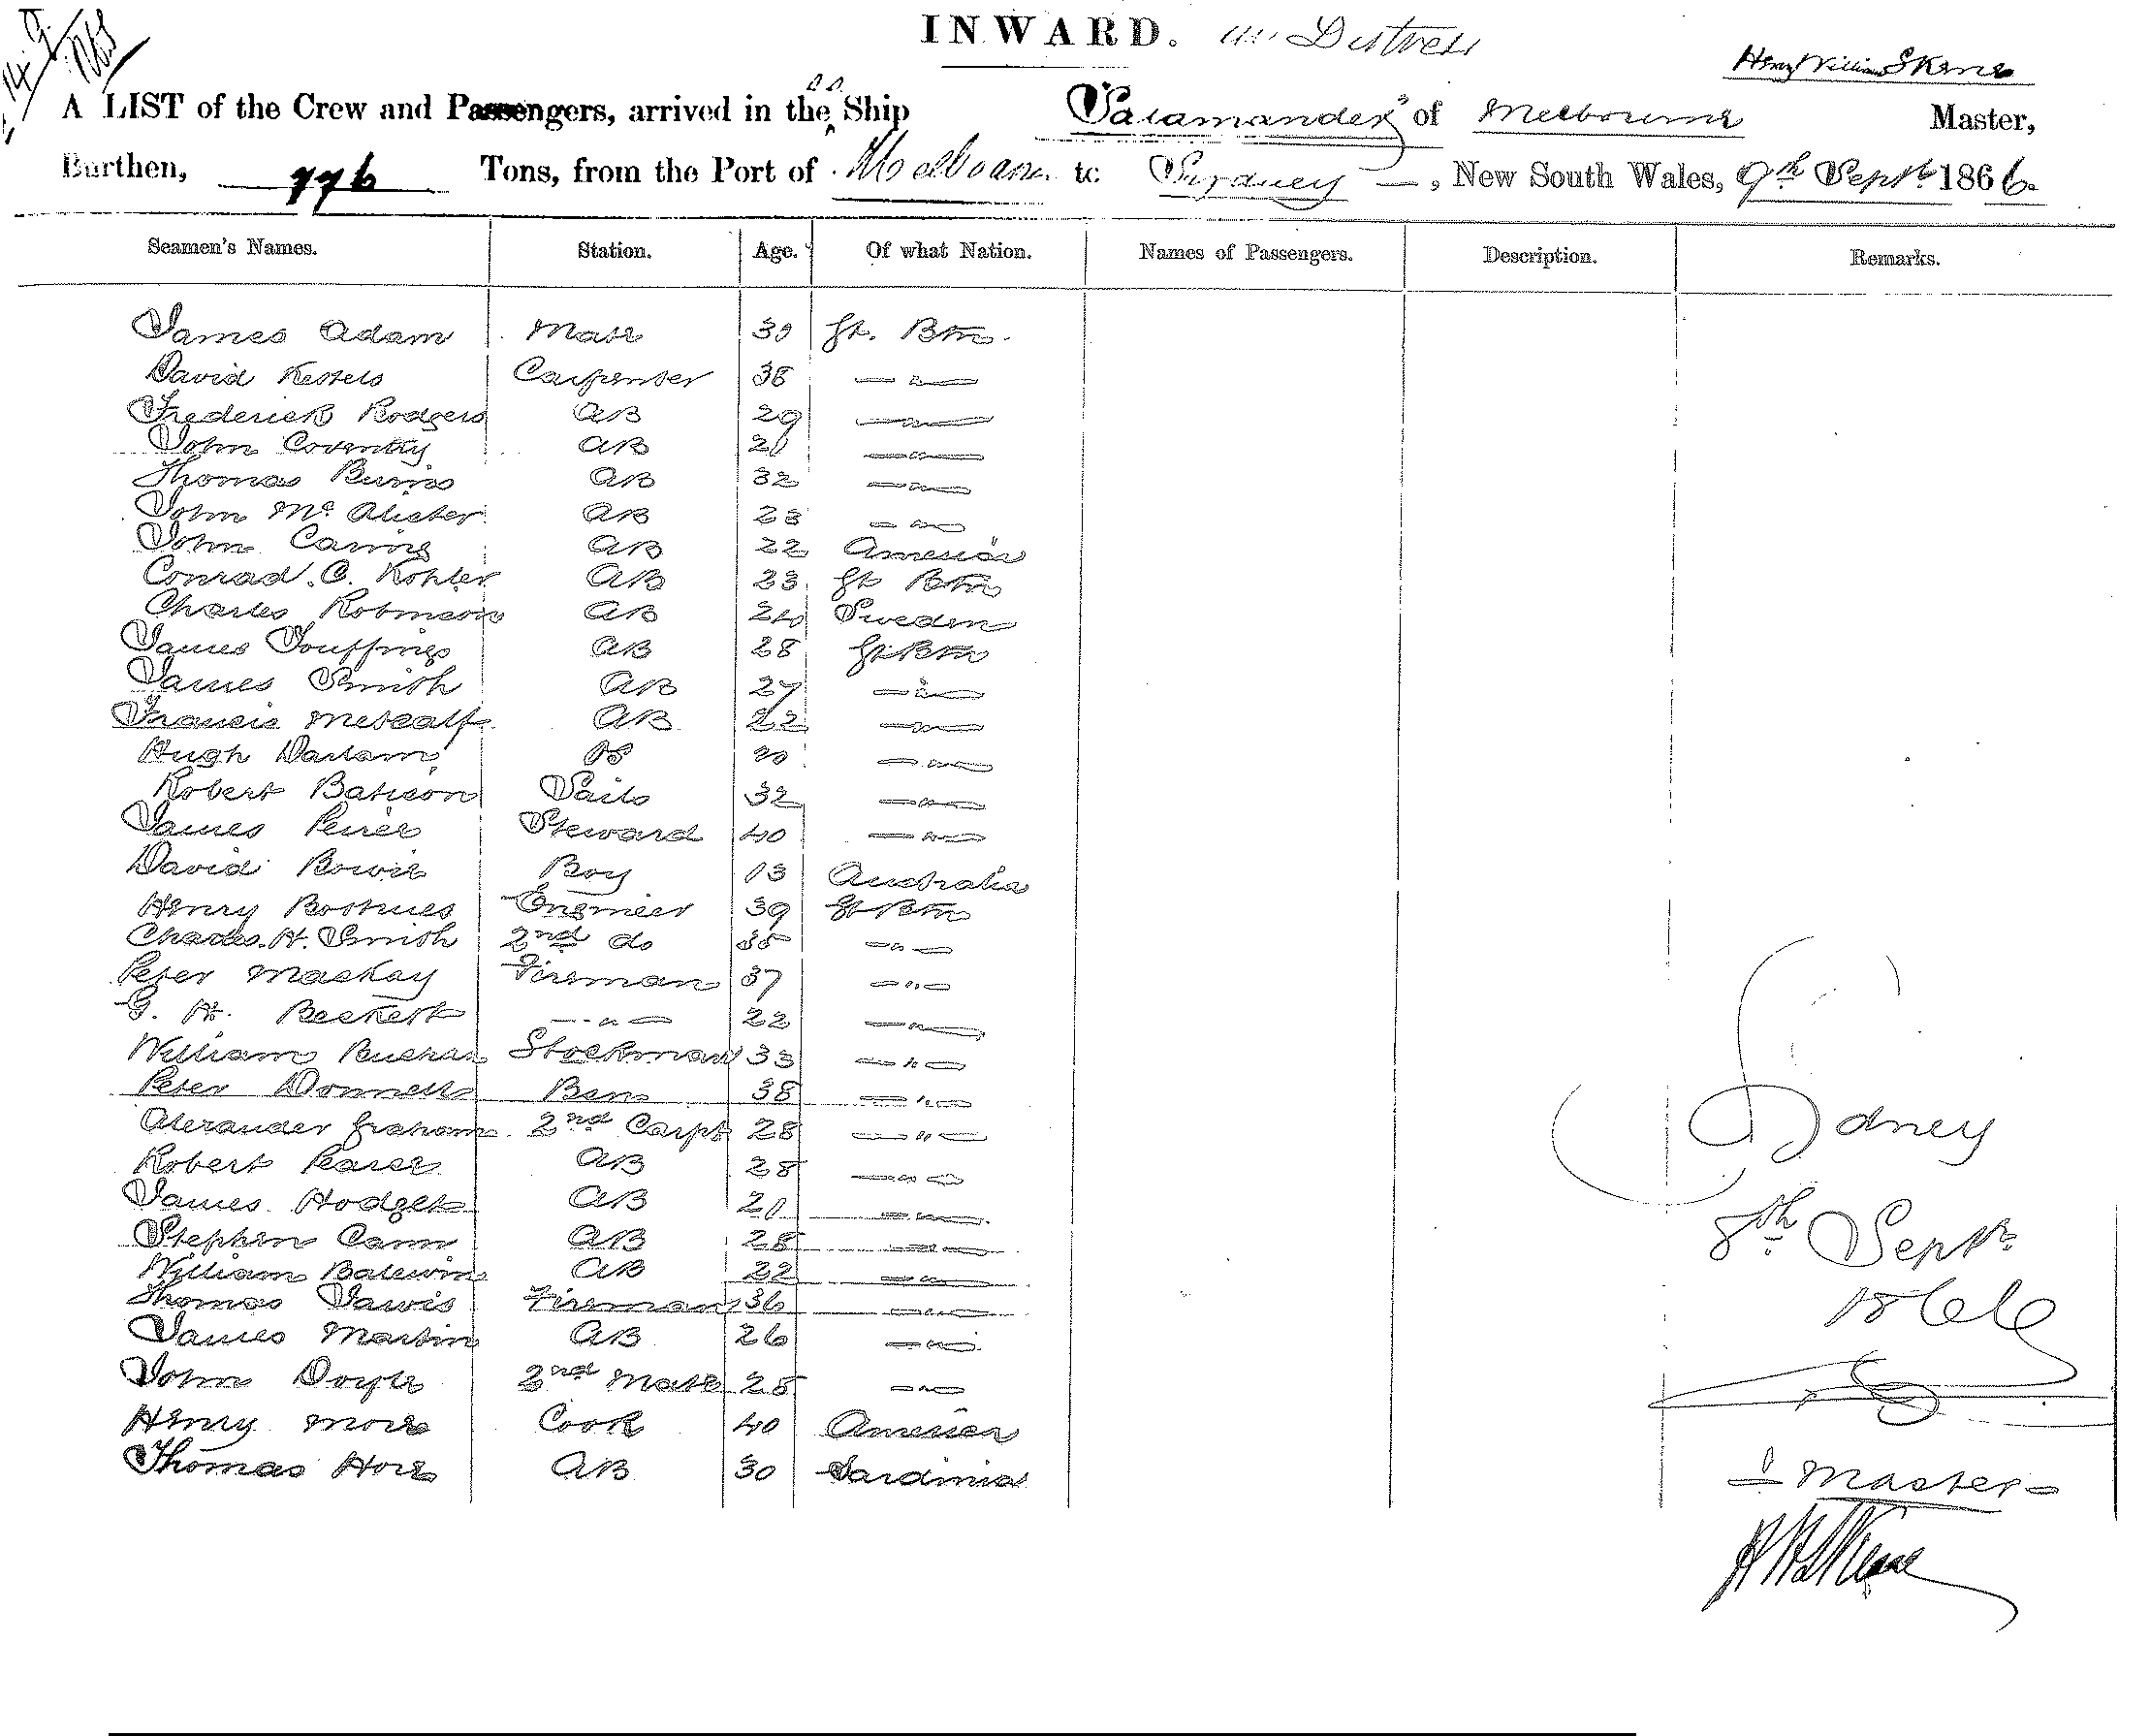 INWARD. in Distress
Henry William Skene
A LIST of the Crew and Passengers, arrived in the SS Ship "Salamander" of Melbourne Master,
Burthen, 776 Tons, from the Port of Melbourne to Sydney —, New South Wales, 9th Septr 1866.
Seamen's Names. Station. Age. Of what Nation. Names of Passengers. Description. Remarks.
James Adam Mate 30 Gt. Btn.
David Kessels Carpenter 38 — " —
Frederick Rodgers AB 29 — " —
John Coventry AB 21 — " —
Thomas Burns AB 32 — " —
John Mc Alister AB 23 — " —
John AB 22 America
Conrad. C. Kohler AB 23 Gt Btn
Charles Robinson AB 24 Sweden
James AB 28 Gt Btn
James Smith AB 27 — " —
Francis Metcalf AB 22 — " —
Hugh OS 20 — " —
Robert Sails 32 — " —
James Steward 40 — " —
David Bowie Boy 13 Australia
Henry Engineer 39 Gt Btn
Charles. H. Smith 2nd do 35 — " —
Peter Mackay Fireman 37 — " —
G. H. Beckett — " — 22 — " —
William Stockman 33 — " —
Peter Donnell 38 — " —
Alexander Graham 2nd Carpt 28 — " —
Robert Pearce AB 28 — " —
James Hodges AB 21 — " —
Stephen Cann AB 28 — " —
William AB 22 — " —
Thomas Fireman 36 — " —
James Martin AB 26 — " —
John Doyle 2nd Mate 25 — " —
Henry More Cook 40 America
Thomas Hore AB 30 Sardinia
Sydney
8th Septr
1866
Master
H W Skene